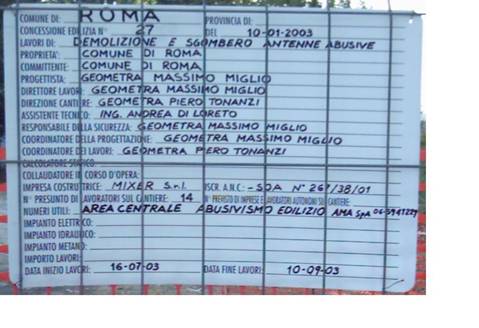 COMUNE DI: ROMA PROVINCIA DI:
CONCESSIONE EDILIZIA N° 27 DEL 10-01-2003
LAVORI DI: DEMOLIZIONE E SGOMBERO ANTENNE ABUSIVE
PROPRIETA': COMUNE DI ROMA
COMMITTENTE: COMUNE DI ROMA
PROGETTISTA: GEOMETRA MASSIMO MIGLIO
DIRETTORE LAVORI: GEOMETRA MASSIMO MIGLIO
DIREZIONE CANTIERE: GEOMETRA PIERO TONANZI
ASSISTENTE TECNICO: ING. ANDREA DI LORETO
RESPONSABILE DELLA SICUREZZA: GEOMETRA MASSIMO MIGLIO
COORDINATORE DELLA PROGETTAZIONE: GEOMETRA MASSIMO MIGLIO
COORDINATORE DEI LAVORI: GEOMETRA PIERO TONANZI
CALCOLATORE STATICO:
COLLAUDATORE IN CORSO D'OPERA:
IMPRESA COSTRUTTRICE: MIXER S.r.l. ISCR. A.N.C.: SOA N° 267/38/01
N° PRESUNTO DI LAVORATORI SUL CANTIERE: 14 N° PREVISTO DI IMPRESE E LAVORATORI AUTONOMI SUL CANTIERE:
NUMERI UTILI: AREA CENTRALE ABUSIVISMO EDILIZIO AMA SpA
IMPIANTO ELETTRICO:
IMPIANTO IDRAULICO:
IMPIANTO METANO:
IMPORTO LAVORI:
DATA INIZIO LAVORI: 16-07-03 DATA FINE LAVORI: 10-09-03